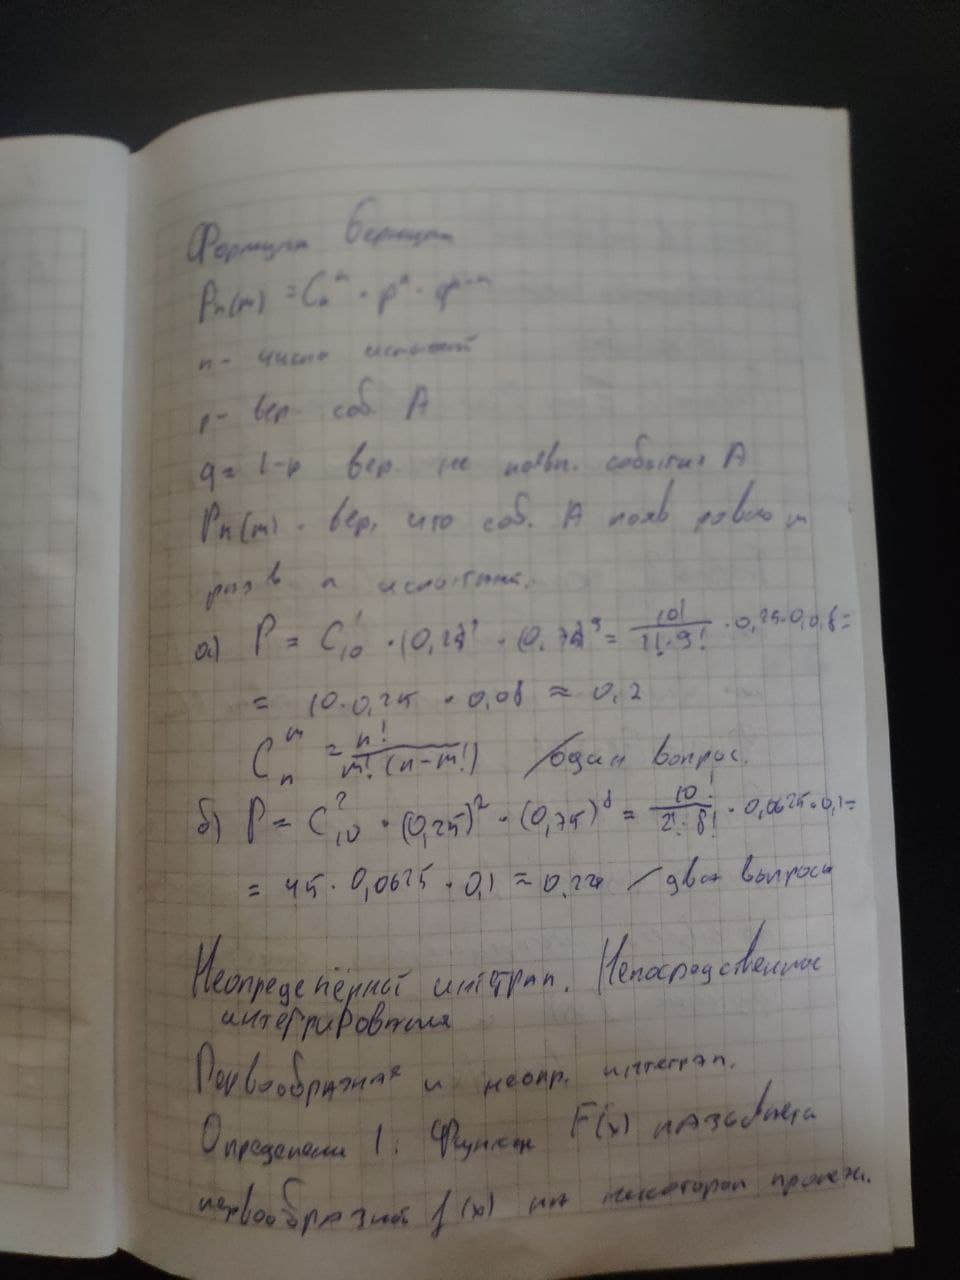 Формула Бернулли
Pn(m) = Cn^m · p^m · q^n-m
n - число испытаний
p - вер. соб. A
q = 1-p вер. не появл. события A
Pn(m) - вер, что соб. A появ ровно m
раз в n испытан.
а) P = C₁₀¹ · (0,25)¹ · (0,75)⁹ = 10!/1!·9! · 0,25·0,08=
= 10·0,25 · 0,08 ≈ 0,2
Cn^m = n!/m!(n-m!) /один вопрос.
б) P = C₁₀² · (0,25)² · (0,75)⁸ = 10!/2!·8! · 0,0625·0,1=
= 45 · 0,0625 · 0,1 ≈ 0,28 /два вопроса
Неопределённый интеграл. Непосредственное
интегрирования
Первообразная и неопр. интеграл.
Определени 1. Функция F(x) называется
первообразной f(x) на некотором промеж.